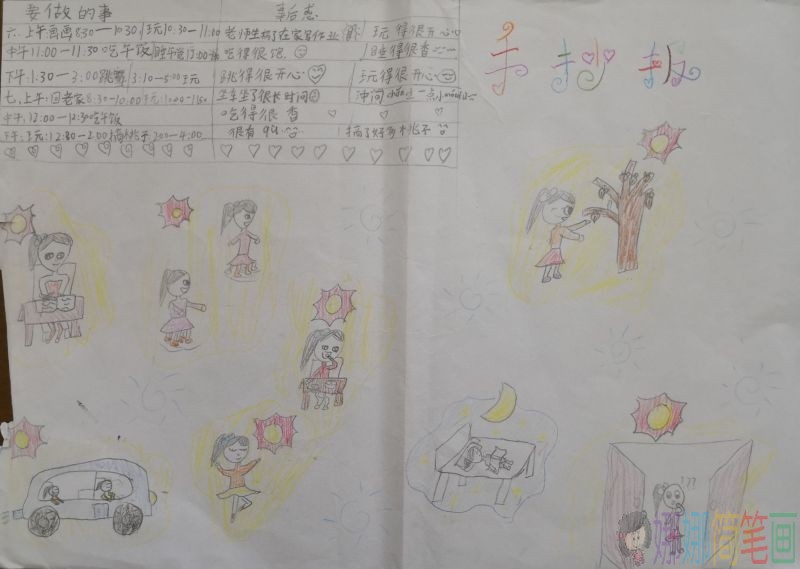 要做的事 事后感
手抄报
六.上午:画画8:30—10:30 玩10:30-11:00 老师生病了在家写作业 玩得很开心
中午11:00—11:30吃午饭 睡午觉 吃得很饱 睡得很香
下午:1:30—3:00跳舞 3:10—5:00玩 跳得很开心 玩得很开心
七.上午:回老家8:30-10:00 玩 坐车坐了很长时间
中午:12:00—12:30吃午饭 吃得很香
下午:玩:12:30-2:00摘桃子2:00-4:00 摘了好多桃子
???
娜娜简笔画